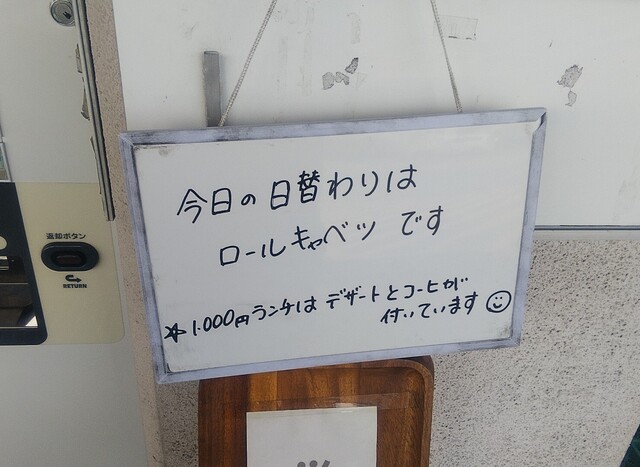 今日の日替わりは
ロールキャベツ です
☆1.000円ランチは デザートとコーヒーが
付いています
返却ボタン
RETURN